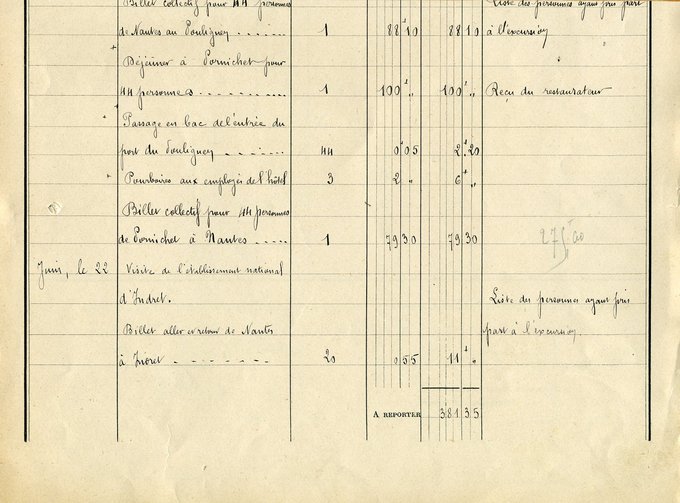 Billet collectif pour 44 personnes Liste des personnes ayant pris part
de Nantes au Pouliguen ....... 1 88 10 88 10 à l'excursion
Déjeuner à Pornichet pour "
44 personnes .......... 1 100 " 100 " Reçu du restaurateur
Passage en bac de l'entrée du
port du Pouliguen ....... 44 0 05 2 20
Pourboires aux employés de l'hôtel 3 2 " 6 "
Billet collectif pour 44 personnes
de Pornichet à Nantes ..... 1 79 30 79 30
Juin, le 22 Visite de l'établissement national
d'Indret. Liste des personnes ayant pris
Billet aller et retour de Nantes part à l'excursion.
à Indret ........ 20 0 55 11 "
A REPORTER 381 35